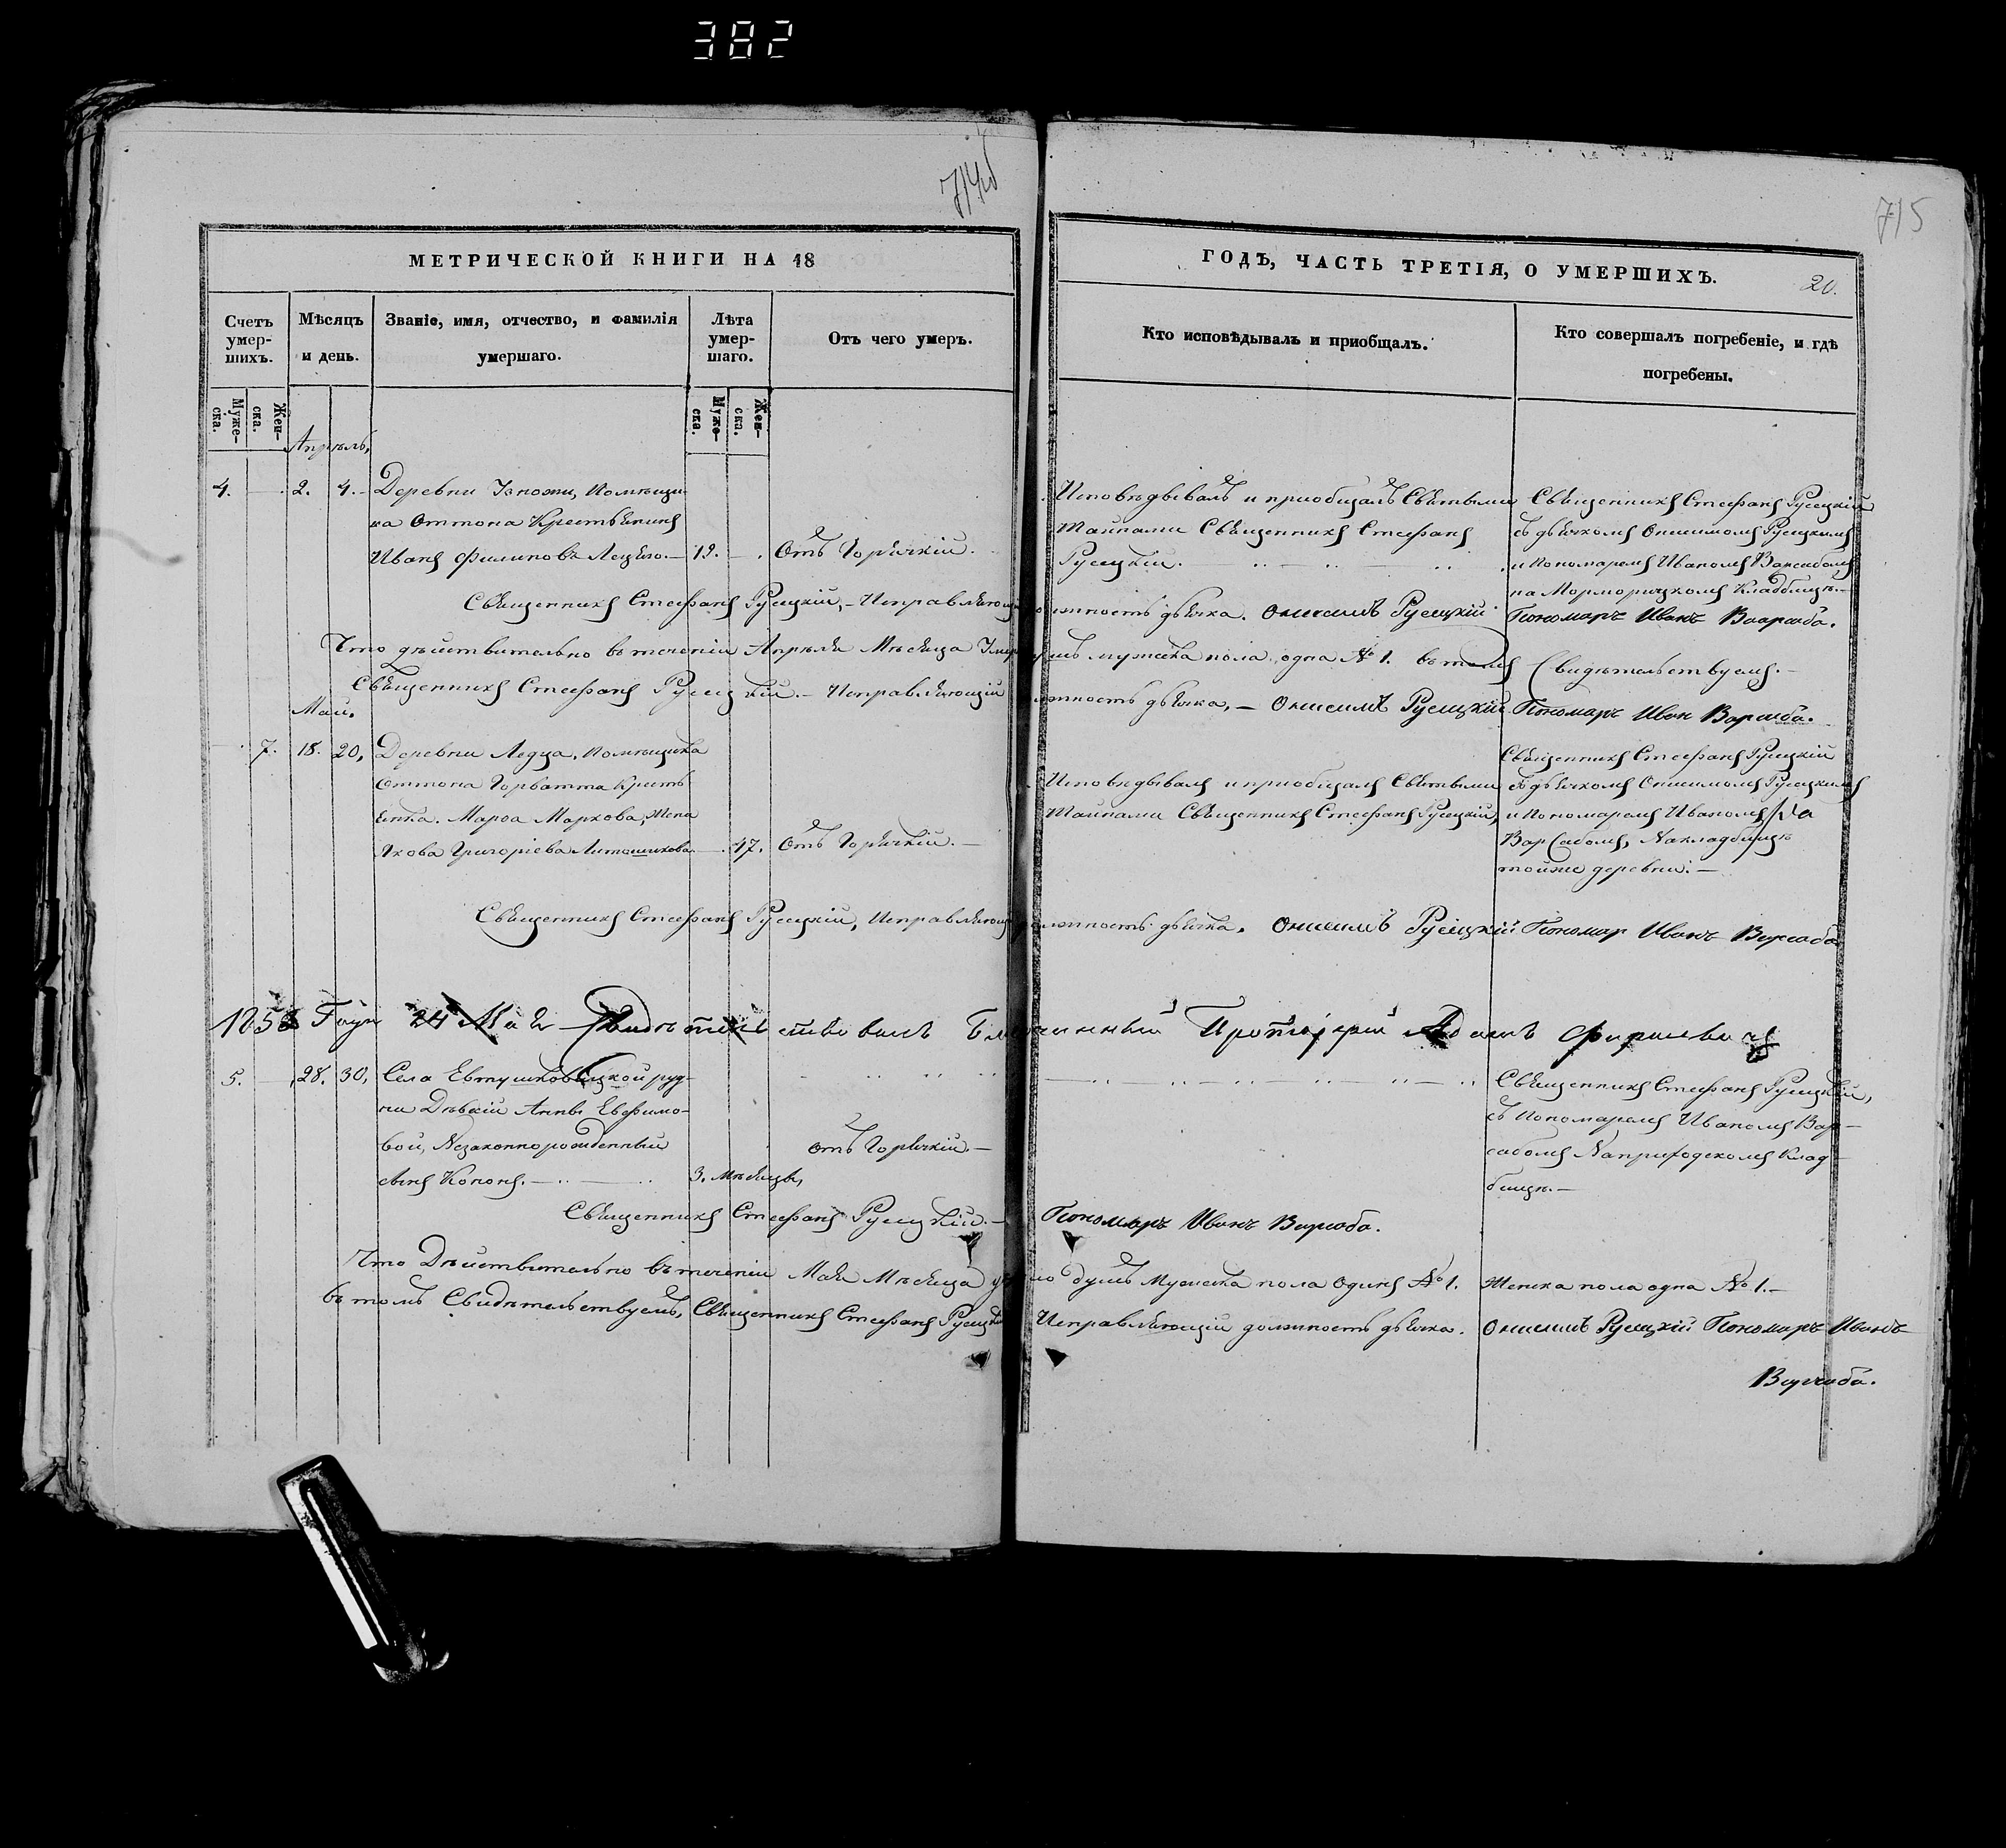 382
714об
715
МЕТРИЧЕСКОЙ КНИГИ НА 18
ГОДЪ, ЧАСТЬ ТРЕТІЯ, О УМЕРШИХЪ.
20.
Счетъ умер-шихъ.
Мѣсяцъ и день.
Званіе, имя, отчество, и фамилія умершаго.
Лѣта умер-шаго.
Отъ чего умеръ.
Кто исповѣдывалъ и приобщалъ.
Кто совершалъ погребеніе, и гдѣ погребены.
Муже-ска.
Жен-ска.
Муже-ска.
Жен-ска.
Апрѣль,
4. 2. 4. Деревни помѣщи-
ка Оттона Крестьянинъ
Иванъ Филиповъ 19. Отъ Горячкій.
Исповѣдывалъ и приобщалъ Святыми
Тайнами Священникъ Стефанъ
Русецкій.
Священникъ Стефанъ Русецкій
съ дьячкомъ Онисимомъ Русецкимъ
и Пономаремъ Иваномъ Варсабомъ
на Кладбищѣ.
Священникъ Стефанъ Русецкій, Исправляющ должность дьячка. Онисимъ Русецкій Пономарь Иванъ Варсаба.
Что дѣйствительно въ теченіи Апрѣля Мѣсяца мужеска пола одна № 1. въ томъ Свидѣтельствуемъ.
Священникъ Стефанъ Русецкій. Исправляющій должность дьячка, Онисимъ Русецкій Пономарь Иван Варсаба.
Май.
7. 18. 20, Деревни Ледца, помѣщика
Оттона Горватта Кресть
янка. Марѳа Маркова, Жена
Якова Григоріева 47. Отъ Горячкій.
Исповѣдывалъ и приобщалъ Святыми
Тайнами Священникъ Стефанъ Русецкій,
Священникъ Стефанъ Русецкій
съ дьячкомъ Онисимомъ Русецкимъ
и Пономаремъ Иваномъ
Варсабомъ, На кладбищѣ
тойже деревни.
Священникъ Стефанъ Русецкій, Исправляющ должность дьячка. Онисимъ Русецкій Пономар Иванъ Варсаба
Года 24 Мая Свидѣтельствовалъ Благочинный Протоіерей Адамъ
5. 28. 30, Села Евтушковицкой руд-
ни Дѣвкій Анны Евфимо-
вой, Незаконнорожденный
сынъ Кононъ. 3. мѣсяцы, отъ Горячкій.
Священникъ Стефанъ Русецкій,
съ Пономаремъ Иваномъ Вар-
сабомъ На приходскомъ Клад-
бищѣ.
Священникъ Стефанъ Русецкій. Пономарь Иванъ Варсаба.
Что Дѣйствительно въ теченіи Мая Мѣсяца душъ Мужеска пола один № 1. Женска пола одна № 1.
въ томъ Свидѣтельствуемъ, Священникъ Стефанъ Русецкій Исправляющій должность дьячка. Онисимъ Русецкій Пономарь Иванъ
Варсаба.